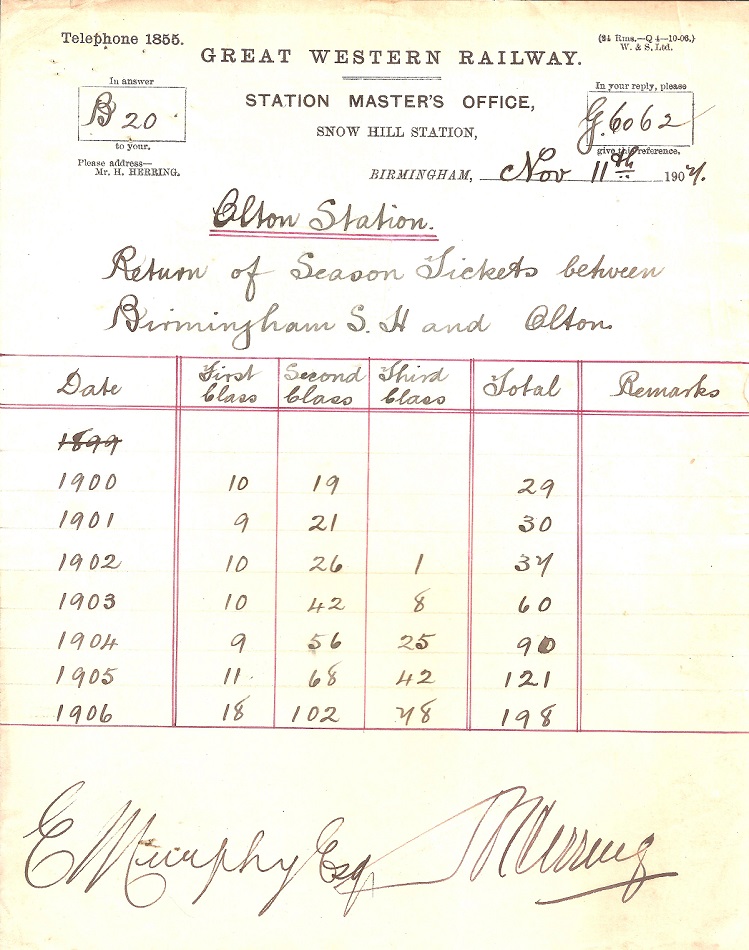 Telephone 1855.
(24 Rms.—Q 4—10-06.)
W. & S. Ltd.
GREAT WESTERN RAILWAY.
In answer
B 20
to your.
Please address—
Mr. H. HERRING.
STATION MASTER'S OFFICE,
SNOW HILL STATION,
In your reply, please
G. 6062
give this reference.
BIRMINGHAM, Nov 11th 1907.
Olton Station.
Return of Season Tickets between
Birmingham S. H and Olton.
Date First Class Second Class Third Class Total Remarks
1899
1900 10 19 29
1901 9 21 30
1902 10 26 1 37
1903 10 42 8 60
1904 9 56 25 90
1905 11 68 42 121
1906 18 102 78 198
E Murphy Esq HHerring